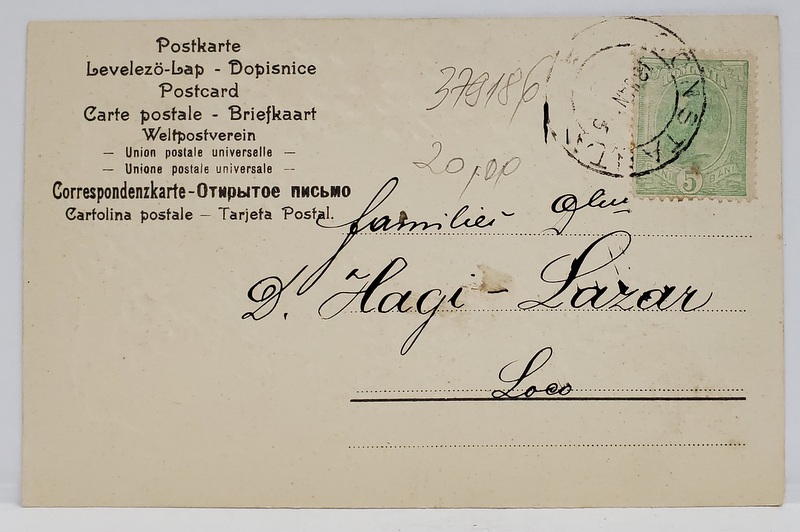 Postkarte
Levelezö-Lap - Dopisnice
Postcard
Carte postale - Briefkaart
Weltpostverein
— Union postale universelle —
— Unione postale universale —
Correspondenzkarte-Открытое письмо
Cartolina postale — Tarjeta Postal.
379186
20
CONSTANTA
5 BANI
familiei Dlui
D. Hagi - Lazar
Loco